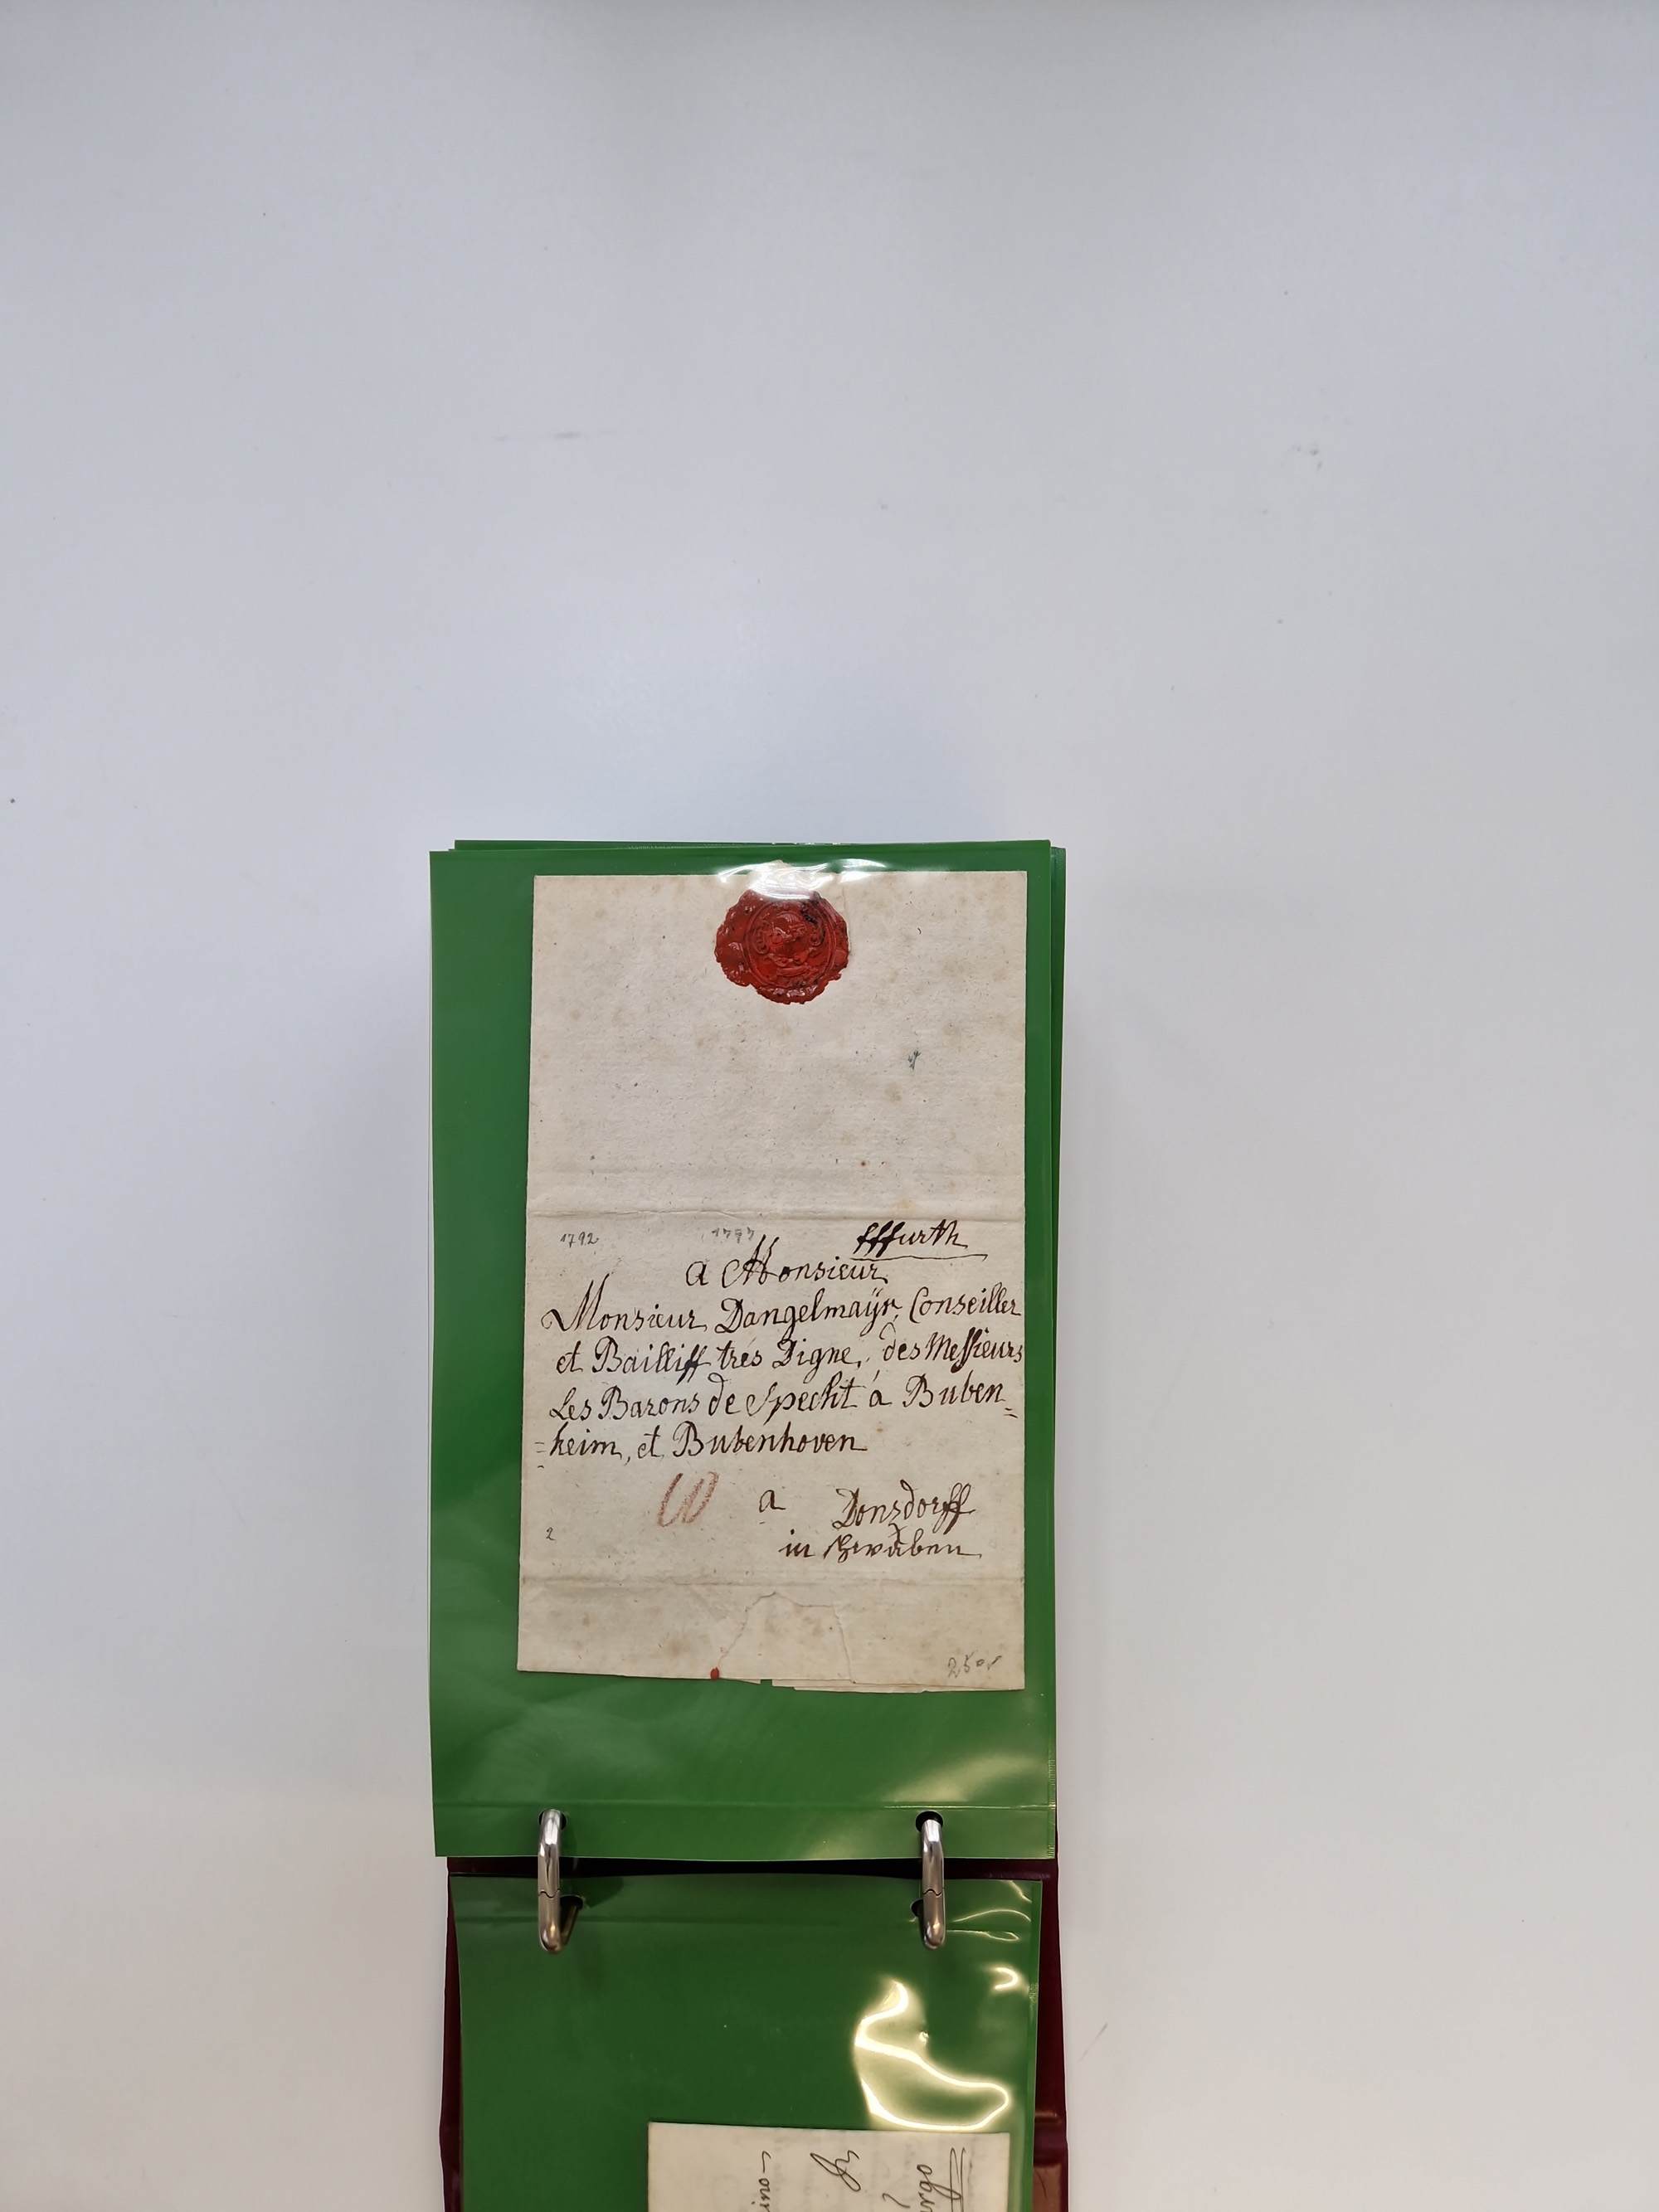 1792
1797
fffurth
a Monsieur
Monsieur Dangelmaÿr, Conseiller
et Bailliff trés Digne, des Messieurs
Les Barons de Specht á Buben=
=heim, et Bubenhoven
a Donsdorff
2
in Schwaben
250,-